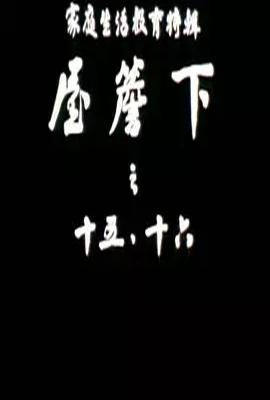 家庭生活教育特輯
屋簷下
之
十五、十六